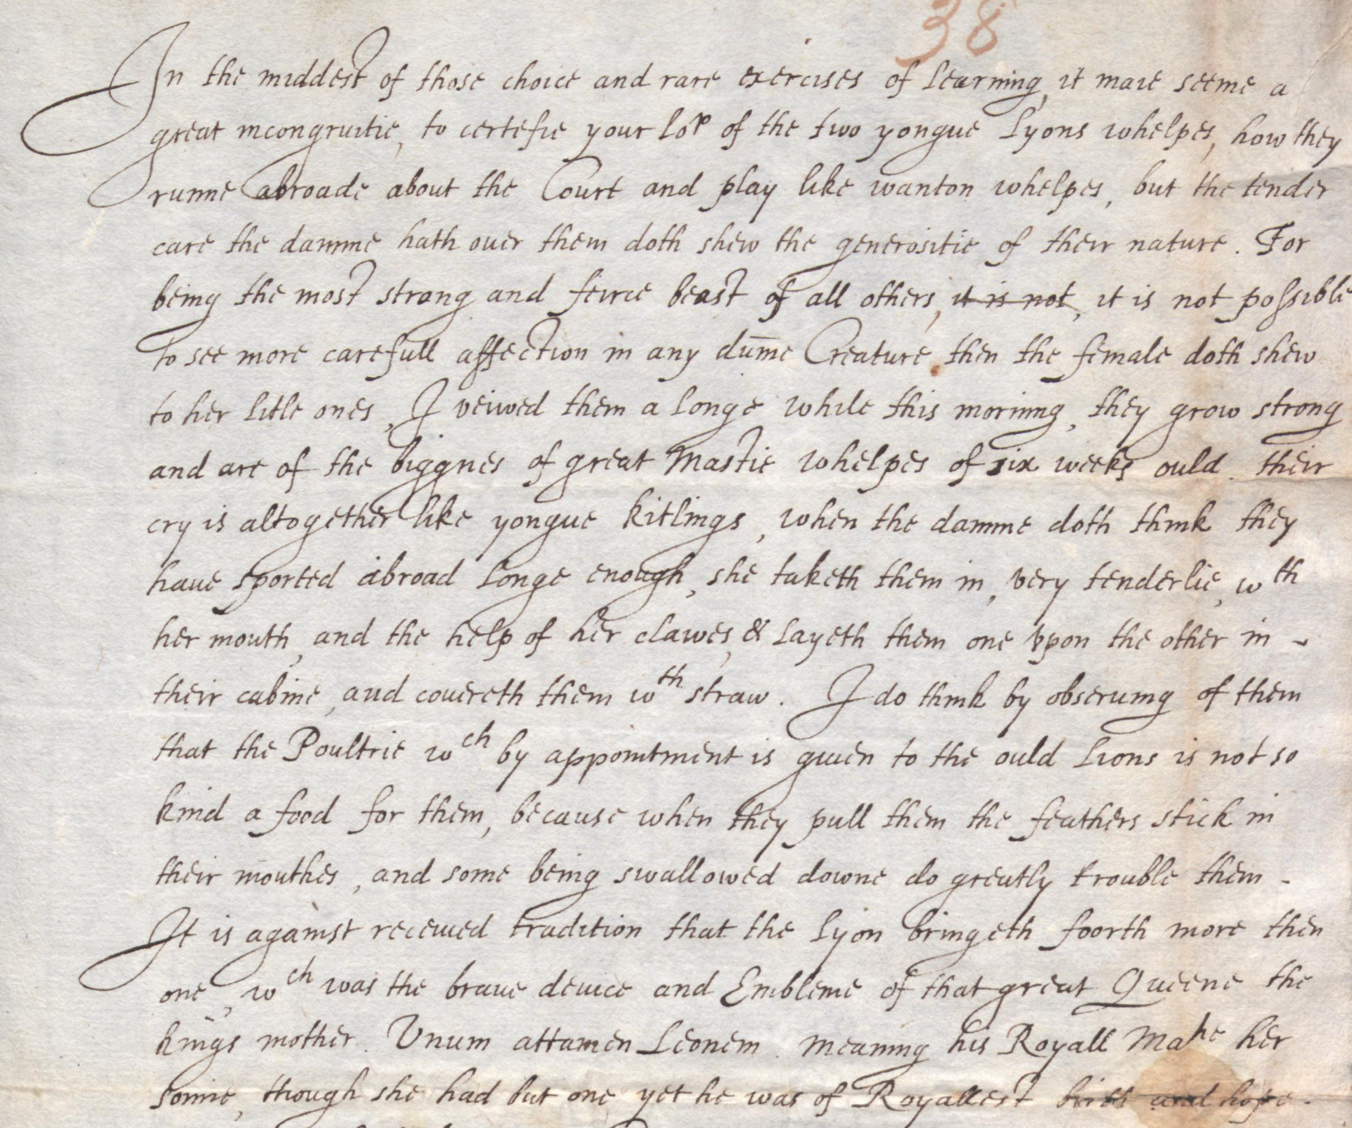 38
In the middest of those choice and rare exercises of learning, it maie seeme a
great incongruitie, to certefie your Lop of the two yongue Lyons whelpes, how they
runne abroade about the Court and play like wanton whelpes, but the tender
care the damme hath over them doth shew the generositie of their nature. For
being the most strong and feirce beast of all others, it is not, it is not possible
to see more carefull affection in any dum̅e Creature, then the female doth shew
to her litle ones, I veiwed them a longe while this morning, they grow strong
and are of the biggnes of great Mastie whelpes of six weeks ould. their
cry is altogether like yongue kitlings, when the damme doth think they
have sported abroad longe enough, she taketh them in, very tenderlie, wth
her mouth, and the help of her clawes, & layeth them one vpon the other in -
their cabine, and couereth them wth straw. I do think by obseruing of them
that the Poultrie wch by appointment is giuen to the ould Lions is not so
kind a food for them, because when they pull them the feathers stick in
their mouthes, and some being swallowed downe do greatly trouble them -
It is against receiued tradition that the Lyon bringeth foorth more then
one, wch was the braue deuice and Embleme of that great Queene the
kings mother. Unum attamen Leonem. meaning his Royall Matie her
sonne, though she had but one yet he was of Royallest birth and hope -